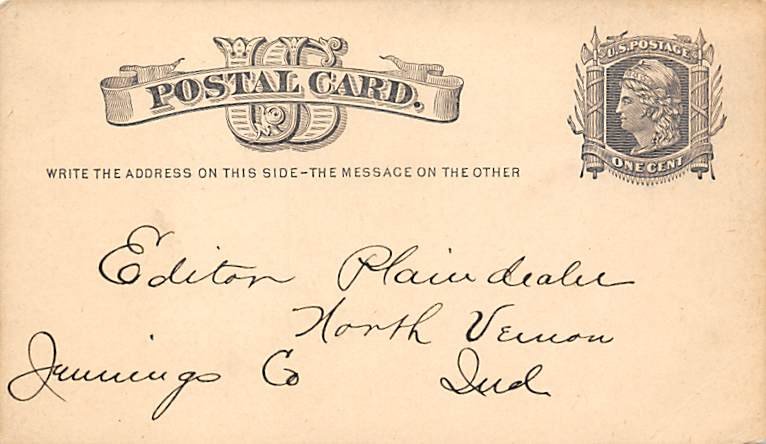 US
POSTAL CARD.
U.S. POSTAGE
ONE CENT
WRITE THE ADDRESS ON THIS SIDE-THE MESSAGE ON THE OTHER
Editor Plaindealer
North Vernon
Jennings Co Ind